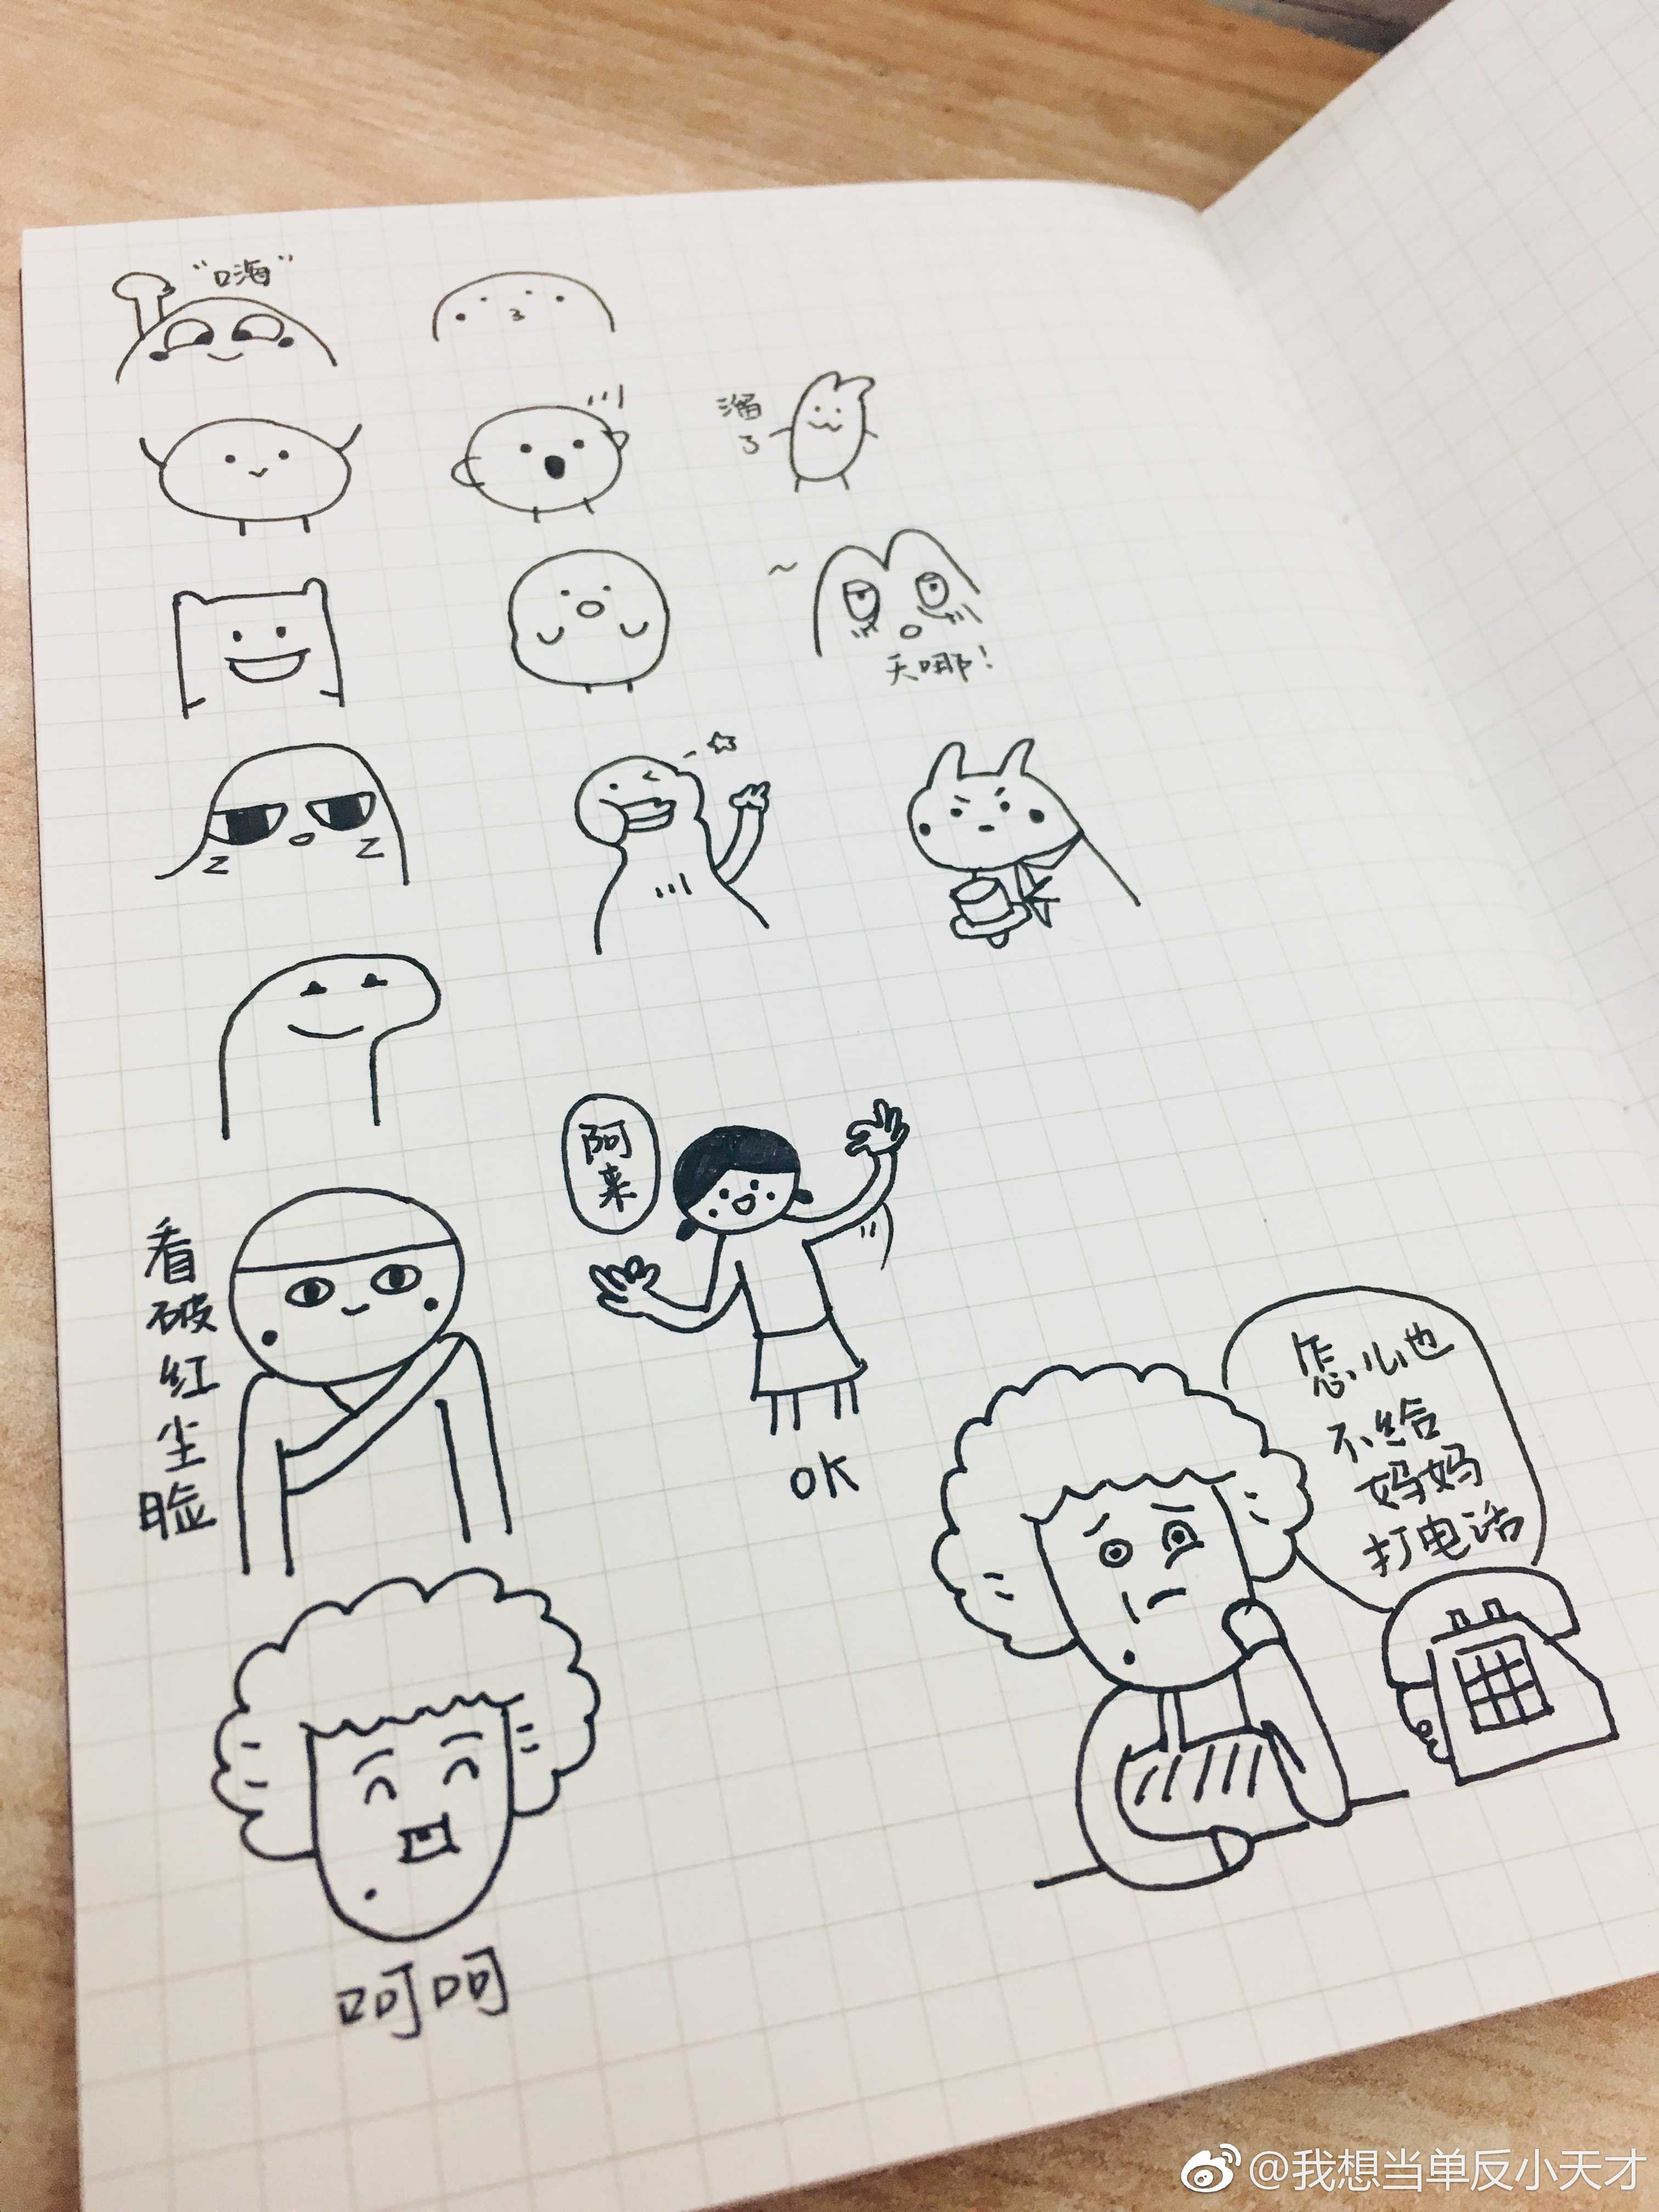 “嗨”
溜
了
天哪！
阿
来
看
破
红
尘
脸
OK
怎么也
不给
妈妈
打电话
呵呵
@我想当单反小天才